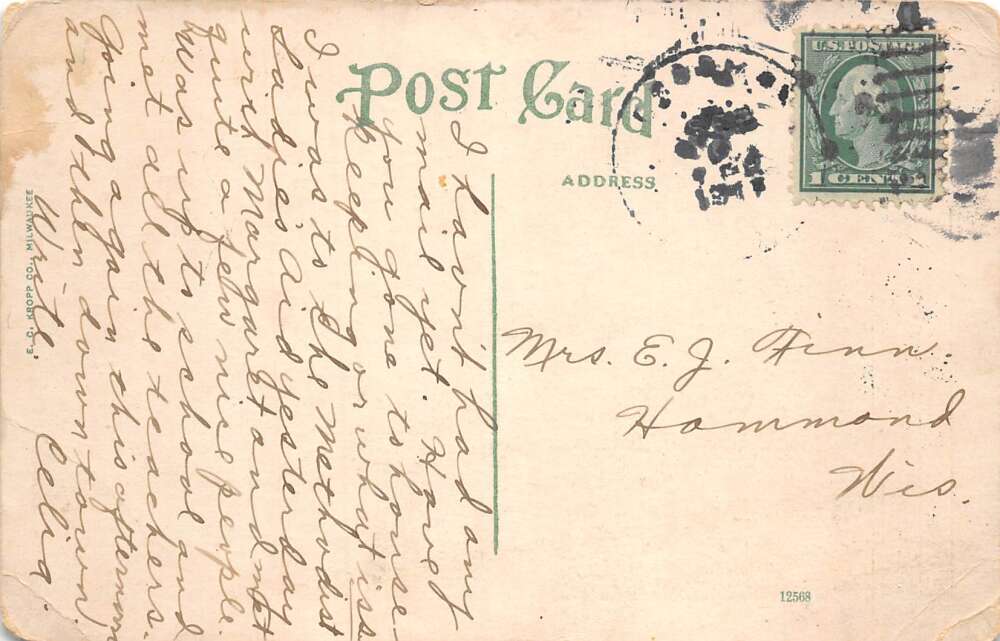 Post Card
ADDRESS
U.S. POSTAGE
1 CENT 1
I havn't had any
mail yet. Have
you gone to house-
keeping or what is
I was to the Methodist
Ladies' Aid yesterday
with Margaret and met
quite a few nice people.
Was up to school and
met all the teachers.
Going again this afternoon
and then down town.
Write. Celia.
Mrs. E. J. Finn.
Hammond
Wis.
E. C. KROPP CO., MILWAUKEE
12568